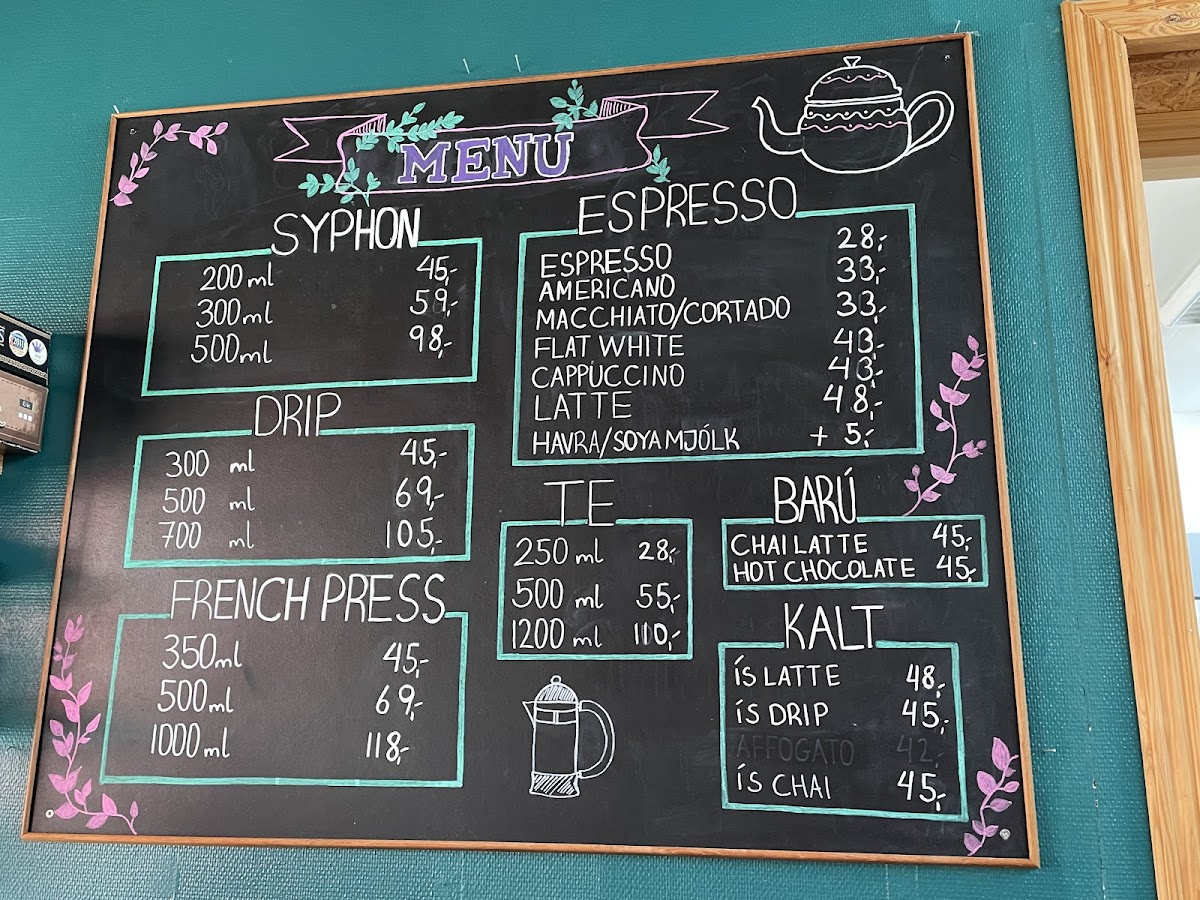 MENU
SYPHON
200 ml 45,-
300 ml 59,-
500 ml 98,-
DRIP
300 ml 45,-
500 ml 69,-
700 ml 105,-
FRENCH PRESS
350 ml 45,-
500 ml 69,-
1000 ml 118,-
ESPRESSO
ESPRESSO 28,-
AMERICANO 33,-
MACCHIATO/CORTADO 33,-
FLAT WHITE 43,-
CAPPUCCINO 43,-
LATTE 48,-
HAVRA/SOYAMJÓLK + 5,-
TE
250 ml 28,-
500 ml 55,-
1200 ml 110,-
BARÚ
CHAI LATTE 45,-
HOT CHOCOLATE 45,-
KALT
ÍS LATTE 48,-
ÍS DRIP 45,-
AFFOGATO 42,-
ÍS CHAI 45,-